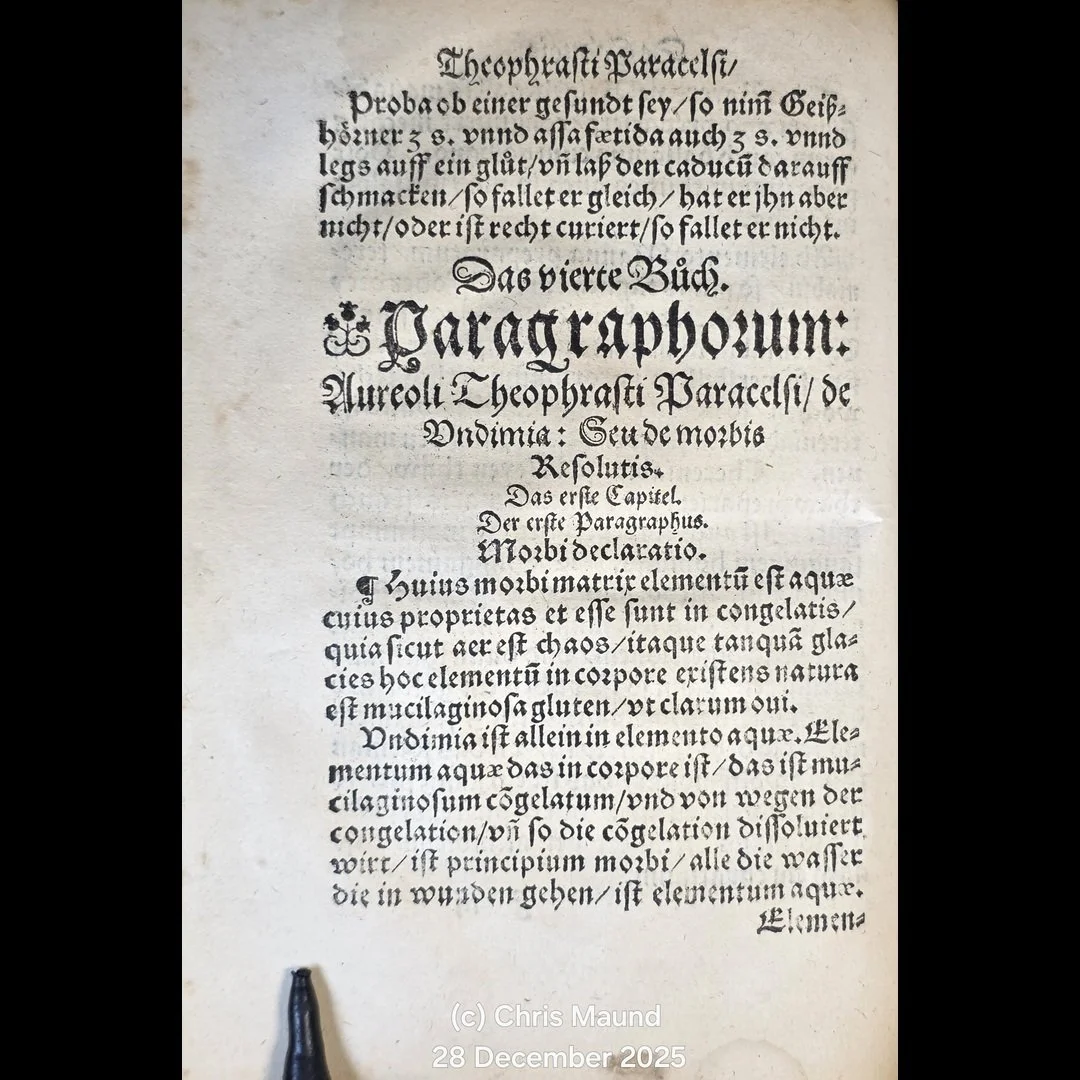 Theophrasti Paracelsi/
Proba ob einer gesundt sey/so nim̃ Geiß-
hörner ʒ s. vnnd assa fætida auch ʒ s. vnnd
legs auff ein glůt/vñ laß den caducũ darauff
schmacken/so fallet er gleich/hat er jhn aber
nicht/oder ist recht curiert/so fallet er nicht.
Das vierte Bůch.
Paragraphorum:
Aureoli Theophrasti Paracelsi/de
Vndimia: Seu de morbis
Resolutis.
Das erste Capitel.
Der erste Paragraphus.
Morbi declaratio.
¶ Huius morbi matrix elementũ est aquæ
cuius proprietas et esse sunt in congelatis/
quia sicut aer est chaos/itaque tanquã gla-
cies hoc elementũ in corpore existens natura
est mucilaginosa gluten/vt clarum oui.
Vndimia ist allein in elemento aquæ. Ele-
mentum aquæ das in corpore ist/das ist mu-
cilaginosum cõgelatum/vnd von wegen der
congelation/vñ so die cõgelation dissoluiert
wirt/ist principium morbi/alle die wasser
die in wunden gehen/ist elementum aquæ.
Elemen-
(c) Chris Maund
28 December 2025